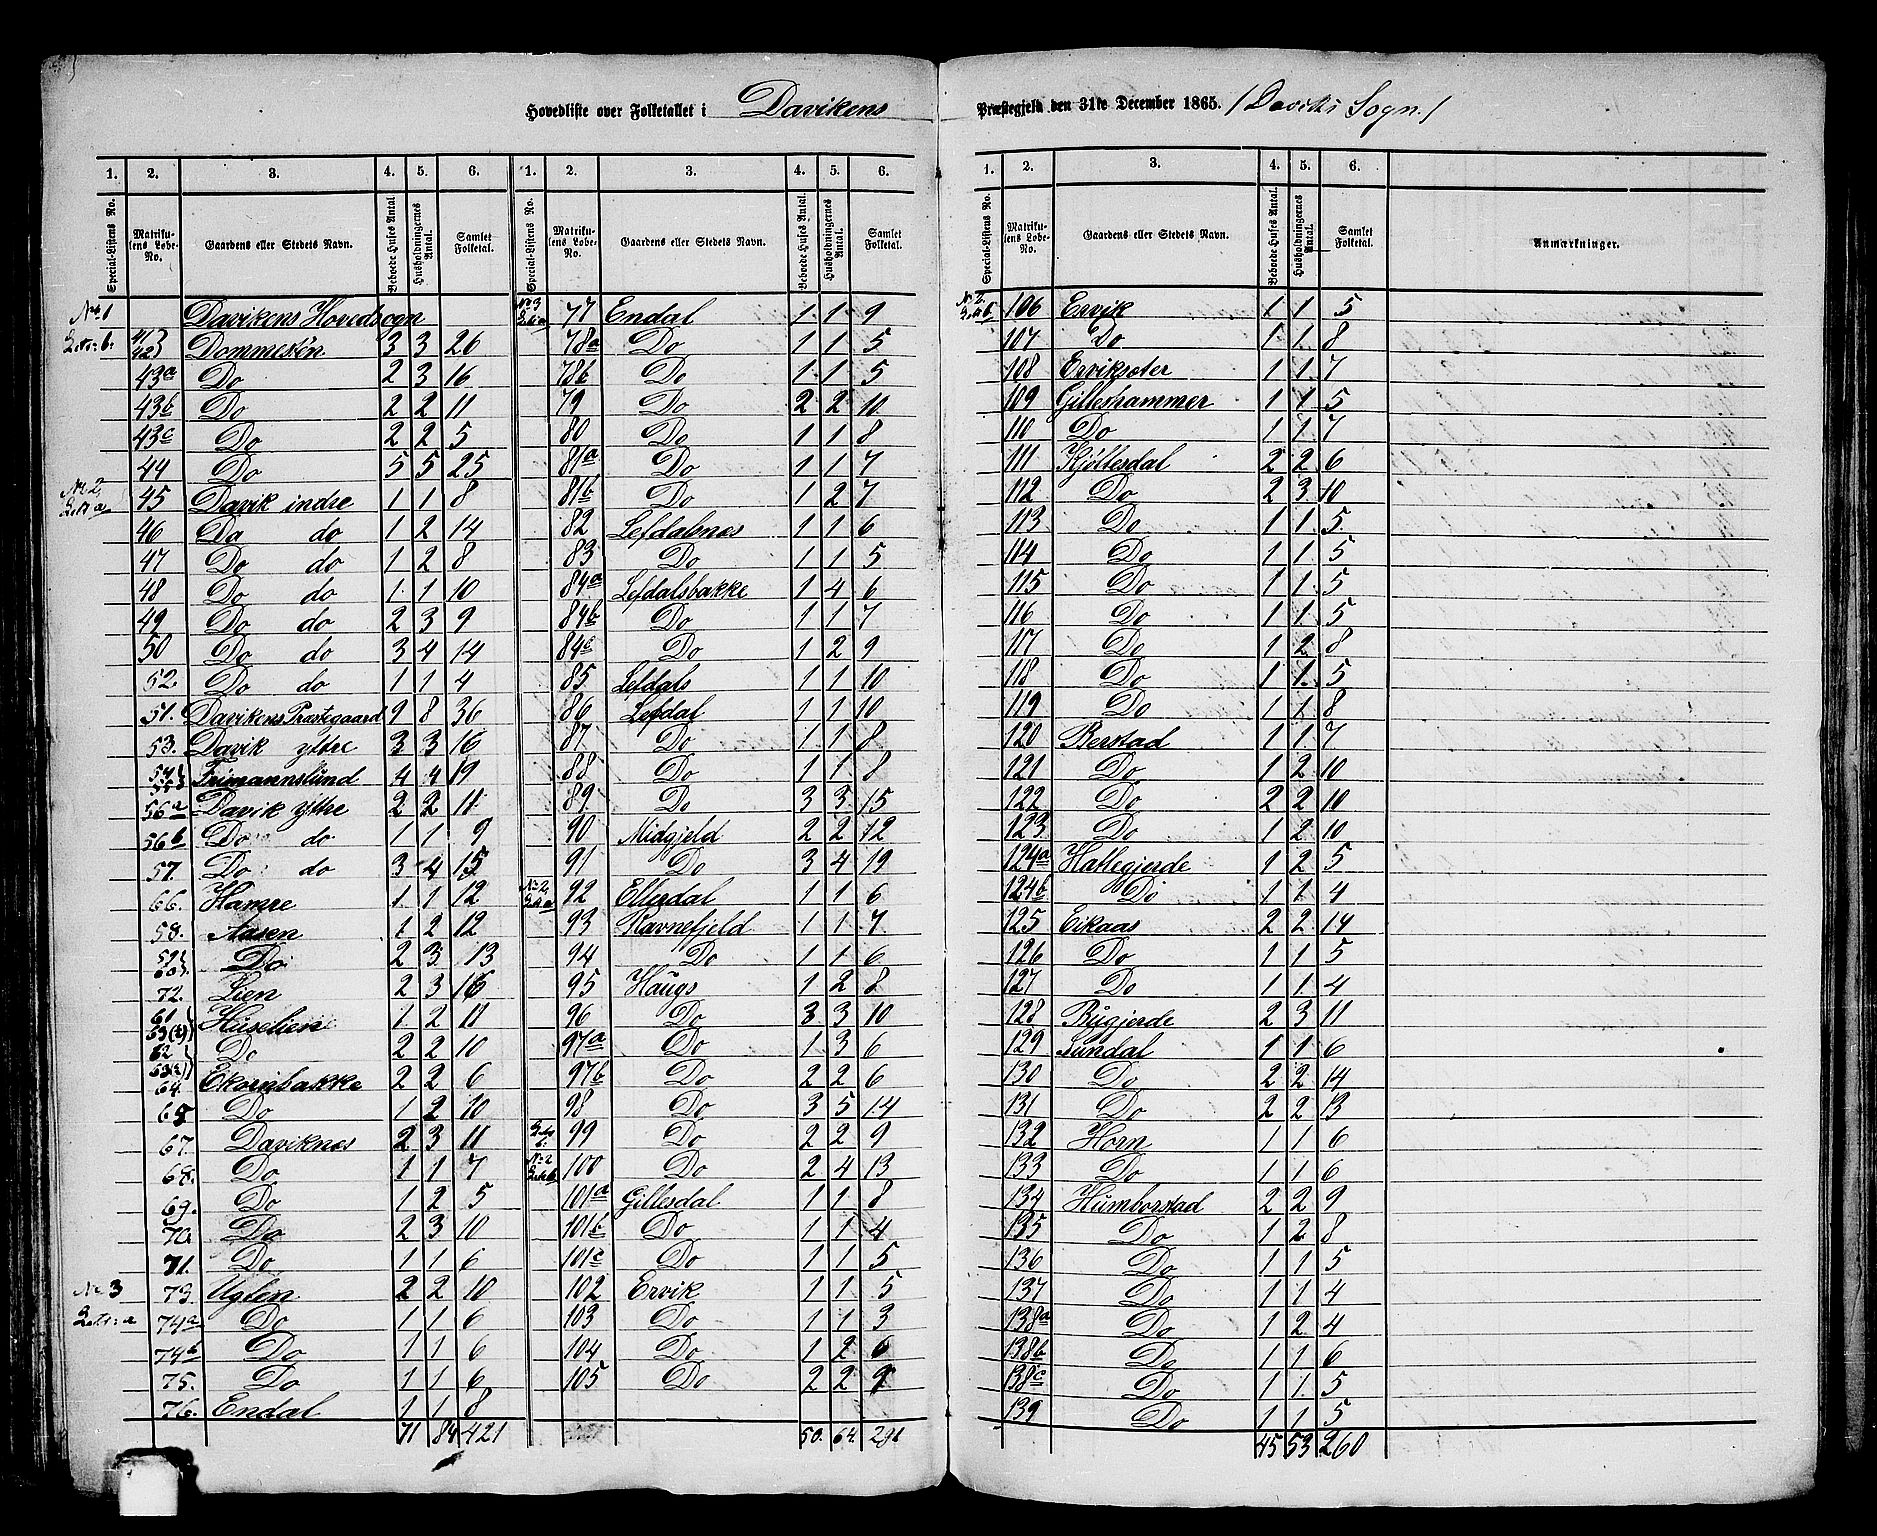 Hovedliste over Folketallet i Davikens Præstegjeld den 31te December 1865. /Daviks Sogn./
1. 2. 3. 4. 5. 6.
Special-Listens No. Matrikulens Løbe-No. Gaardens eller Stedets Navn. Beboede Huses Antal. Husholdningernes Antal. Samlet Folketal.
No 1 Davikens Hovedsogn
Do 3 3 26
43a Do 2 3 16
43b Do 2 2 11
43c Do 2 2 5
44 Do 5 5 25
No 2
45 Davik indre 1 1 8
46 Do do 1 2 14
47 Do do 1 2 8
48 Do do 1 1 10
49 Do do 2 3 9
50 Do do 3 4 14
52. Do do 1 1 4
51. Davikens Præstegaard 9 8 36
53. Davik yttre 3 3 16
54 55 Frimannslund 4 4 19
56a Davik yttre 2 2 11
56b Do do 1 1 9
57. Do do 3 4 15
66. Hamre 1 1 12
58. Aasen 1 2 12
59 60 Do 2 3 13
72. Lien 2 3 16
61 Huselien 1 2 11
62 Do 2 2 10
64. Ekornbakke 2 2 6
65 Do 1 2 10
67. Daviknes 2 3 11
68. Do 1 1 7
69. Do 1 2 5
70 Do 2 3 10
71. Do 1 1 6
No 3 73. Uglen 2 2 10
74a Do 1 1 6
74b Do 1 1 6
75. Do 1 1 6
76. Endal 1 1 8
71 84 421
1. 2. 3. 4. 5. 6.
Special-Listens No. Matrikulens Løbe-No. Gaardens eller Stedets Navn. Beboede Huses Antal. Husholdningernes Antal. Samlet Folketal.
No 3 77 Endal 1 1 9
78a Do 1 1 5
78b Do 1 1 5
79 Do 2 2 10
80 Do 1 1 8
81a Do 1 1 7
81b Do 1 2 7
82 Lefdalsnes 1 1 6
83 Do 1 1 5
84a Lefdalsbakke 1 4 6
84b Do 1 1 7
84c Do 1 2 9
85 Lefdals 1 1 10
86 Lefdal 1 1 10
87 Do 1 1 8
88 Do 1 1 8
89 Do 3 3 15
90 Midgjeld 2 2 12
91 Do 3 4 19
No 2 92 Ellesdal 1 1 6
93 Ravnefjeld 1 1 7
94 Do 1 1 6
95 Haugs 1 2 8
96 Do 3 3 10
97a Do 1 3 6
97b Do 2 2 6
98 Do 3 5 14
99 Do 2 2 9
No 2 100 Do 2 4 13
101a Gillesdal 1 1 8
101b Do 1 1 4
101c Do 1 1 5
102 Ervik 1 1 5
103 Do 1 1 3
104 Do 1 2 6
105 Do 2 2 9
50. 64. 291
1. 2. 3. 4. 5. 6.
Special-Listens No. Matrikulens Løbe-No. Gaardens eller Stedets Navn. Beboede Huses Antal. Husholdningernes Antal. Samlet Folketal. Anmærkninger.
No 2. 106 Ervik 1 1 5
107 Do 1 1 8
108 Erviksæter 1 1 7
109 Gilleshammer 1 1 5
110 Do 1 1 7
111 Kjøllesdal 2 2 6
112 Do 2 3 10
113 Do 1 1 5
114 Do 1 1 5
115 Do 1 1 5
116 Do 1 1 5
117 Do 1 2 8
118 Do 1 1 5
119 Do 1 1 8
120 Berstad 1 1 7
121 Do 1 2 10
122 Do 2 2 10
123 Do 1 2 10
124a Hattegjerde 1 2 5
124b Do 1 1 4
125 Eikaas 2 2 14
126 Do 1 1 5
127 Do 1 1 4
128 Rugjerde 2 3 11
129 Sundal 1 1 6
130 Do 2 2 14
131 Do 2 2 13
132 Horn 1 1 6
133 Do 1 1 6
134 Humborstad 2 2 9
135 Do 1 2 8
136 Do 1 1 5
137 Do 1 1 4
138a Do 1 2 4
138b Do 1 1 6
138c Do 1 1 5
139 Do 1 1 5
45 53 260